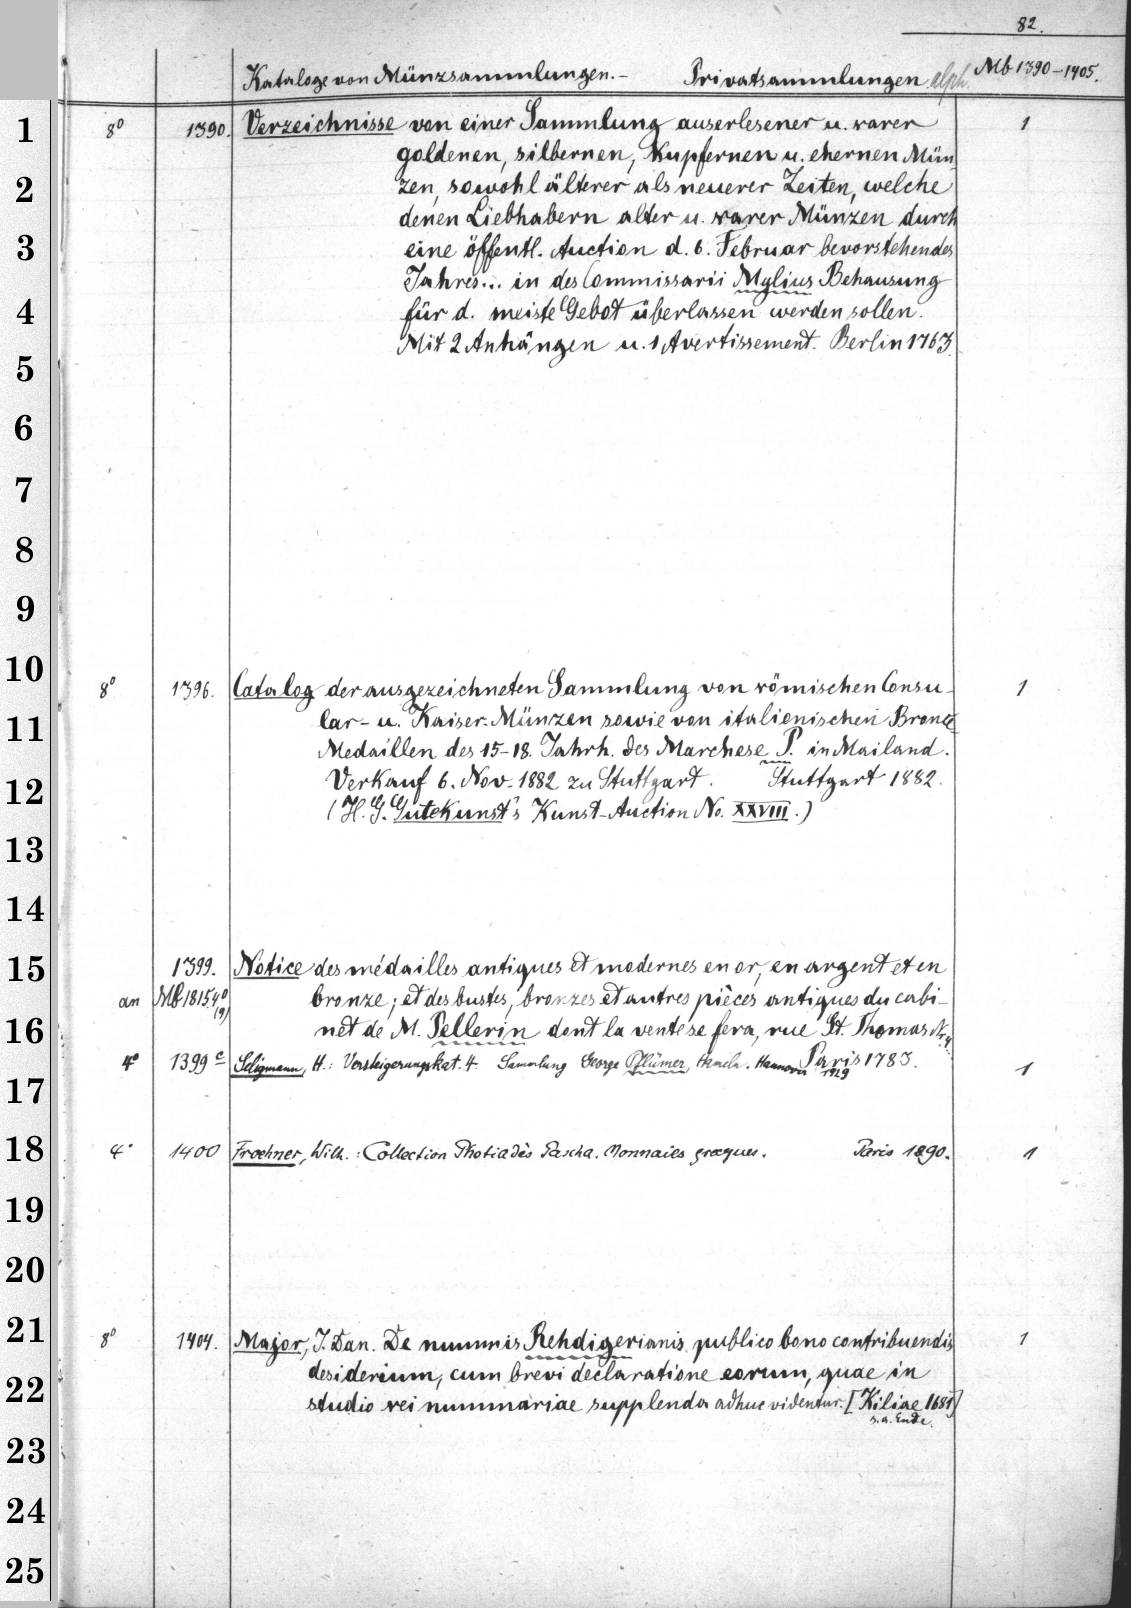 82.
Kataloge von Münzsammlungen.- Privatsammlungen alph. Mb 1390-1405.
1
8° 1390. Verzeichnisse von einer Sammlung auserlesener u. rarer 1
goldenen, silbernen, kupfernen u. ehernen Mün-
2
zen, sowohl älterer als neuerer Zeiten, welche
denen Liebhabern alter u. rarer Münzen durch
3
eine öffentl. Auction d. 6. Februar bevorstehendes
Jahres... in des Commissarii Mylius Behausung
4
für d. meiste Gebot überlassen werden sollen.
Mit 2 Anhängen u. 1 Avertissement. Berlin 1763.
5
6
7
8
9
10
8° 1396. Catalog der ausgezeichneten Sammlung von römischen Consu- 1
11
lar- u. Kaiser-Münzen sowie von italienischen Bronce
Medaillen des 15-18. Jahrh. des Marchese P. in Mailand.
12
Verkauf 6. Nov. 1882 zu Stuttgart. Stuttgart 1882.
(H. G. Gutekunst's Kunst-Auction No. XXVIII.)
13
14
15
1399. Notice des médailles antiques et modernes en or, en argent et en
an Mb 1815 4° (9) bronze; et des bustes, bronzes et autres pièces antiques du cabi-
16
net de M. Pellerin dont la vente se fera, rue St. Thomas
Paris 1783.
4° 1399 c Seligmann, H.: Versteigerungskat. 4. Sammlung George Pflümer, Hameln. Hannover 1929 1
17
18
4° 1400 Froehner, Wilh.: Collection Photiadès Pascha. Monnaies grecques. Paris 1890. 1
19
20
21
8° 1404. Major, J. Dan. De nummis Rehdigerianis publico bono contribuendis 1
desiderium, cum brevi declaratione eorum, quae in
22
studio rei nummariae supplenda adhuc videntur. [Kiliae 1681]
s. a. Ende.
23
24
25